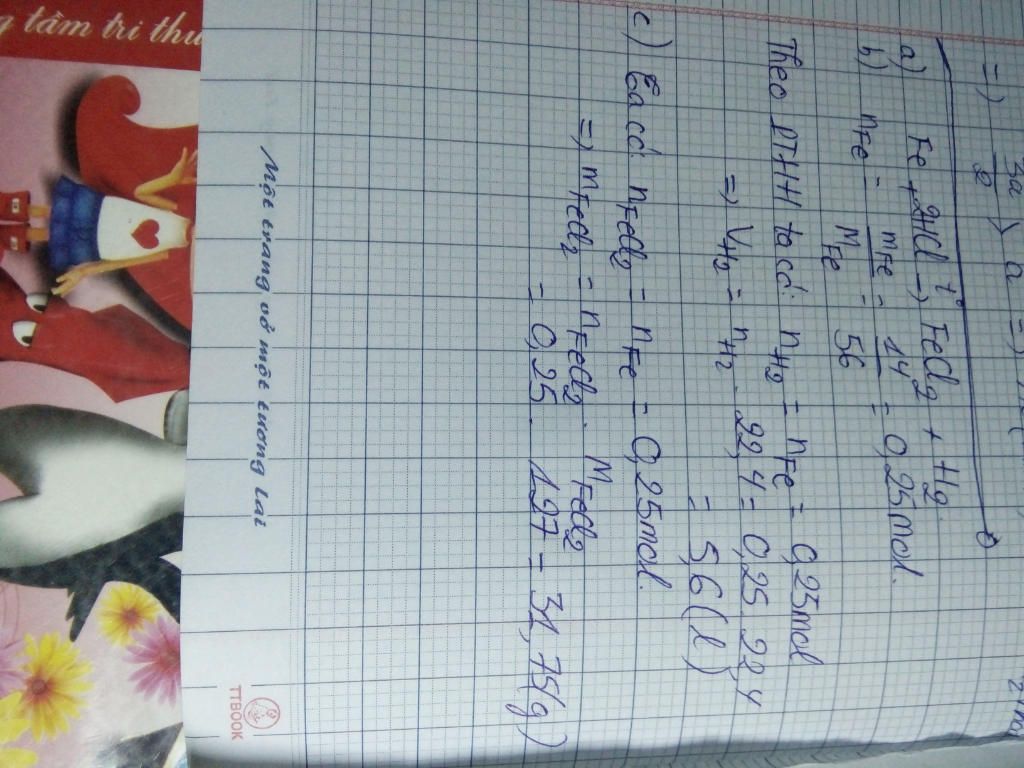 =) 3a/2 > a =)
a) Fe + 2HCl -t°-> FeCl2 + H2
b) nFe = mFe/MFe = 14/56 = 0,25mol.
Theo PTHH ta có: nH2 = nFe = 0,25mol
=) VH2 = nH2 . 22,4 = 0,25. 22,4
= 5,6(l)
c) Ta có: nFeCl2 = nFe = 0,25mol.
=) mFeCl2 = nFeCl2 . MFeCl2
= 0,25 . 127 = 31,75(g)
Một trang vở một tương lai
TTBOOK
g tầm tri thứ